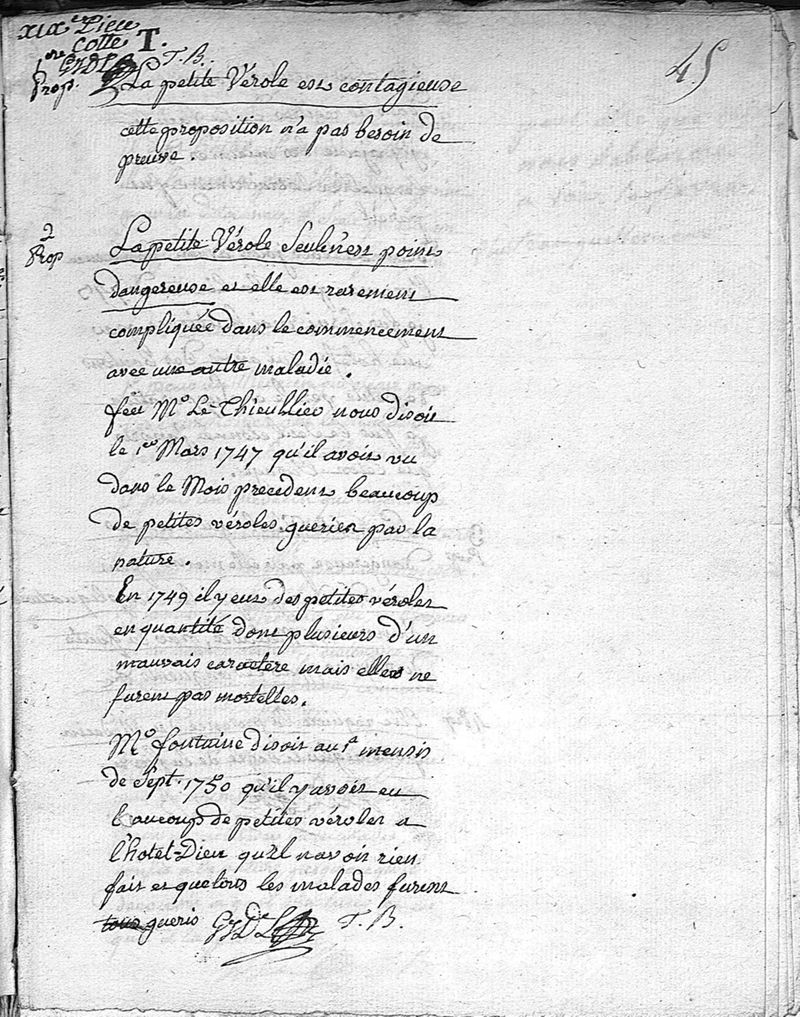 XIXe Piece
Cotte T.
1ere T. B.
Prop. La petite Vérole est contagieuse
45
cette proposition n'a pas besoin de
preuve.
2
Prop
La petite Vérole Seule n'est point
dangereuse et elle est rarement
compliquée dans le commencement
avec une autre maladie.
feu Mr. Le Thieullier nous disoit
le 1er Mars 1747 qu'il avoit vu
dans le Mois precedent beaucoup
de petites véroles, gueries par la
nature.
En 1749 il y eut des petites véroles
en quantité dont plusieurs d'un
mauvais caractere mais elles ne
furent pas mortelles.
Mr. fontaine disoit au 1a mensis
de Sept. 1750 qu'il y avoit eu
beaucoup de petites véroles a
l'hotel-Dieu qu'il n'avoit rien
fait et que tous les malades furent
tous gueris T. B.